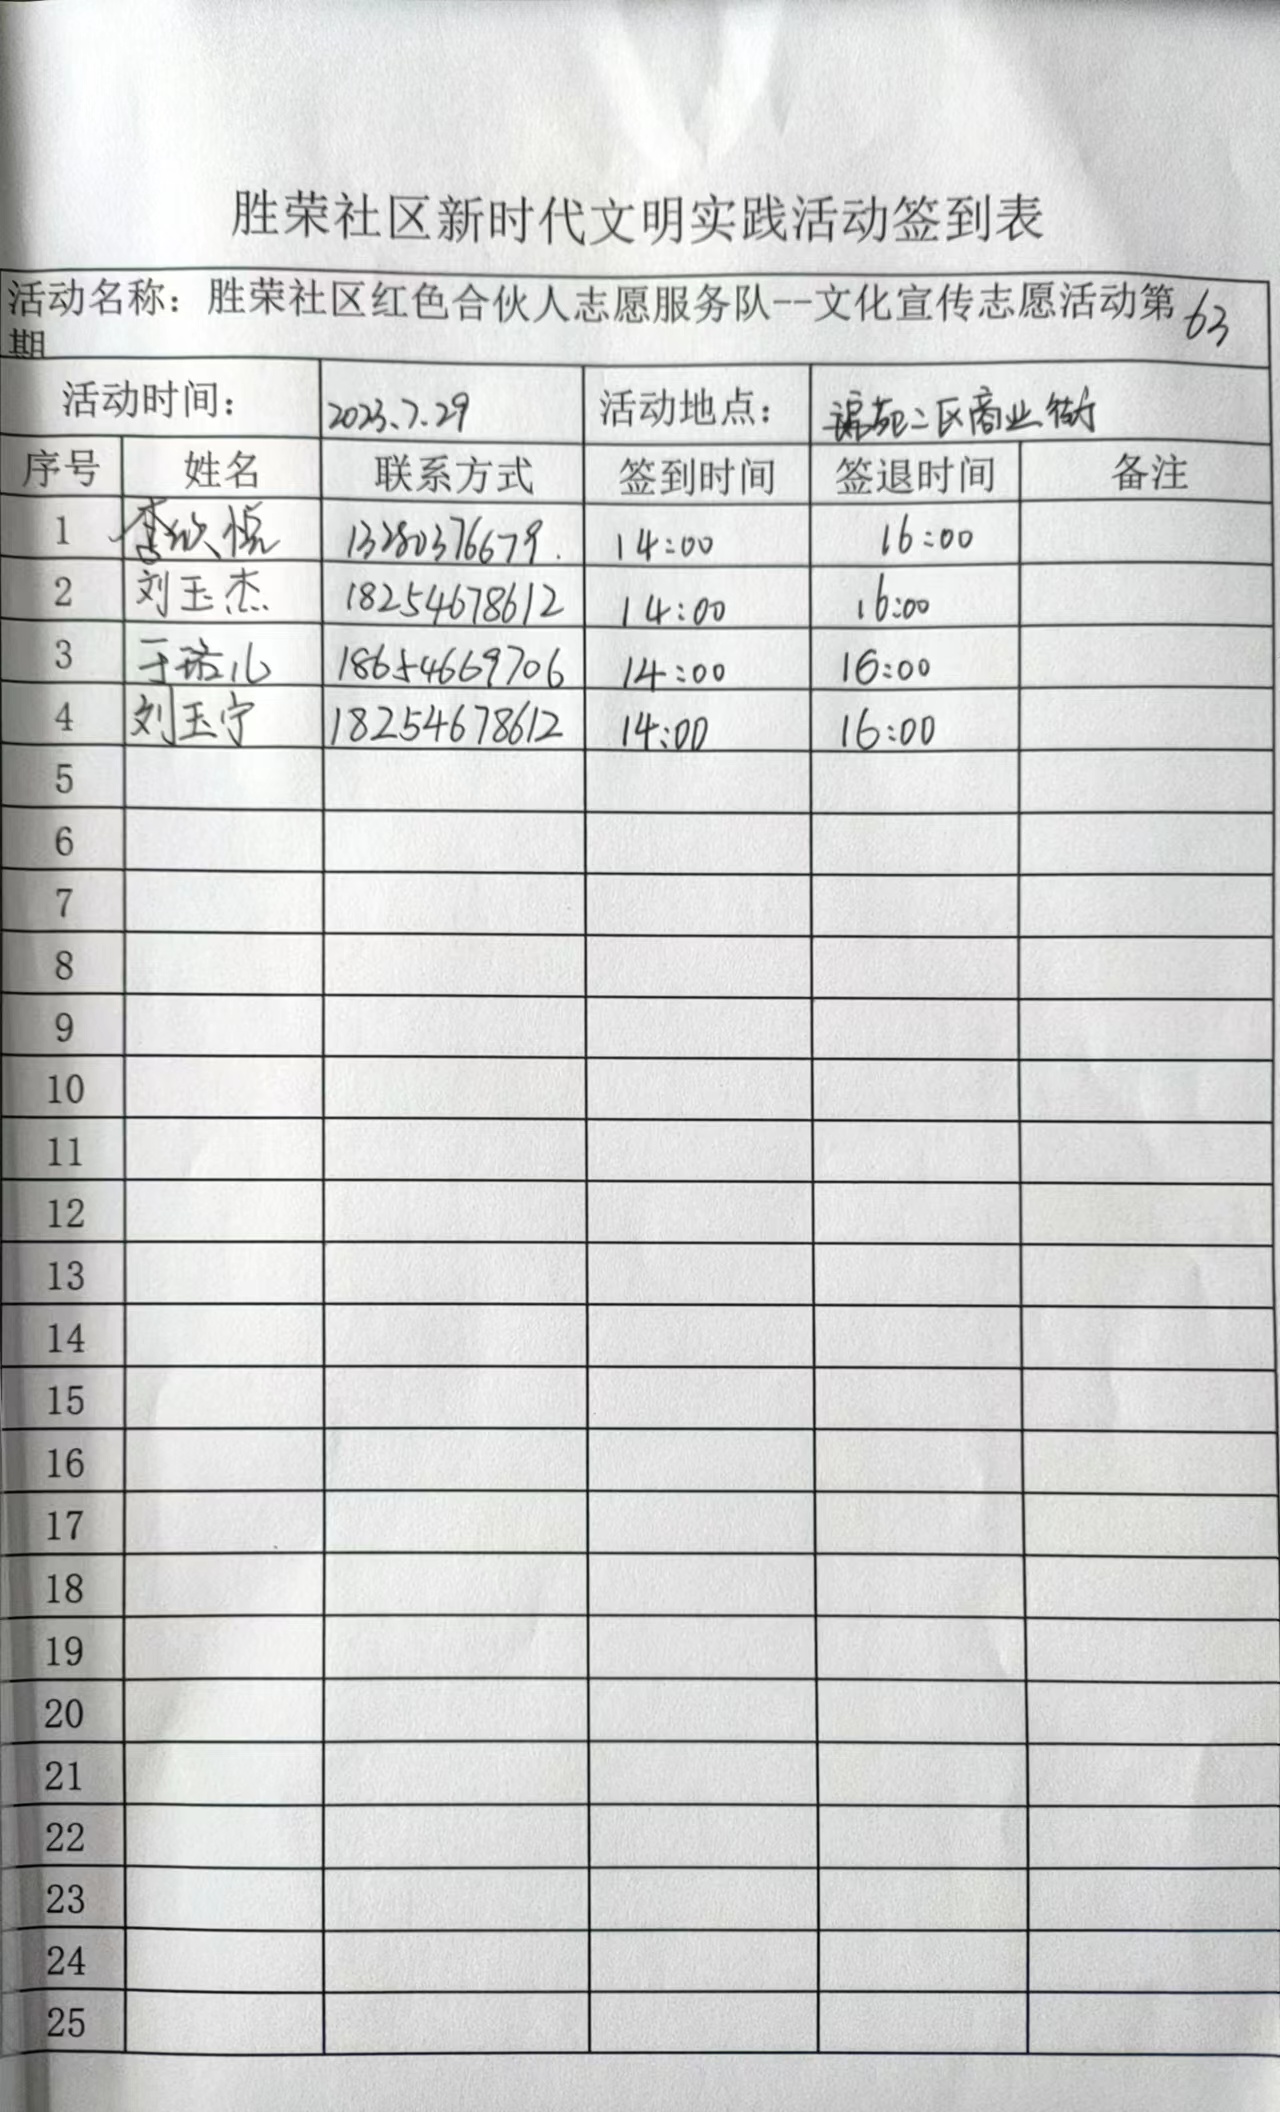 胜荣社区新时代文明实践活动签到表
活动名称：胜荣社区红色合伙人志愿服务队--文化宣传志愿活动第63
期
活动时间： 2023.7.29 活动地点： 二区商业街
序号 姓名 联系方式 签到时间 签退时间 备注
1 李欣悦 13280376679. 14:00 16:00
2 刘玉杰 18254678612 14:00 16:00
3 于 18654669706 14:00 16:00
4 刘玉宁 18254678612 14:00 16:00
5
6
7
8
9
10
11
12
13
14
15
16
17
18
19
20
21
22
23
24
25